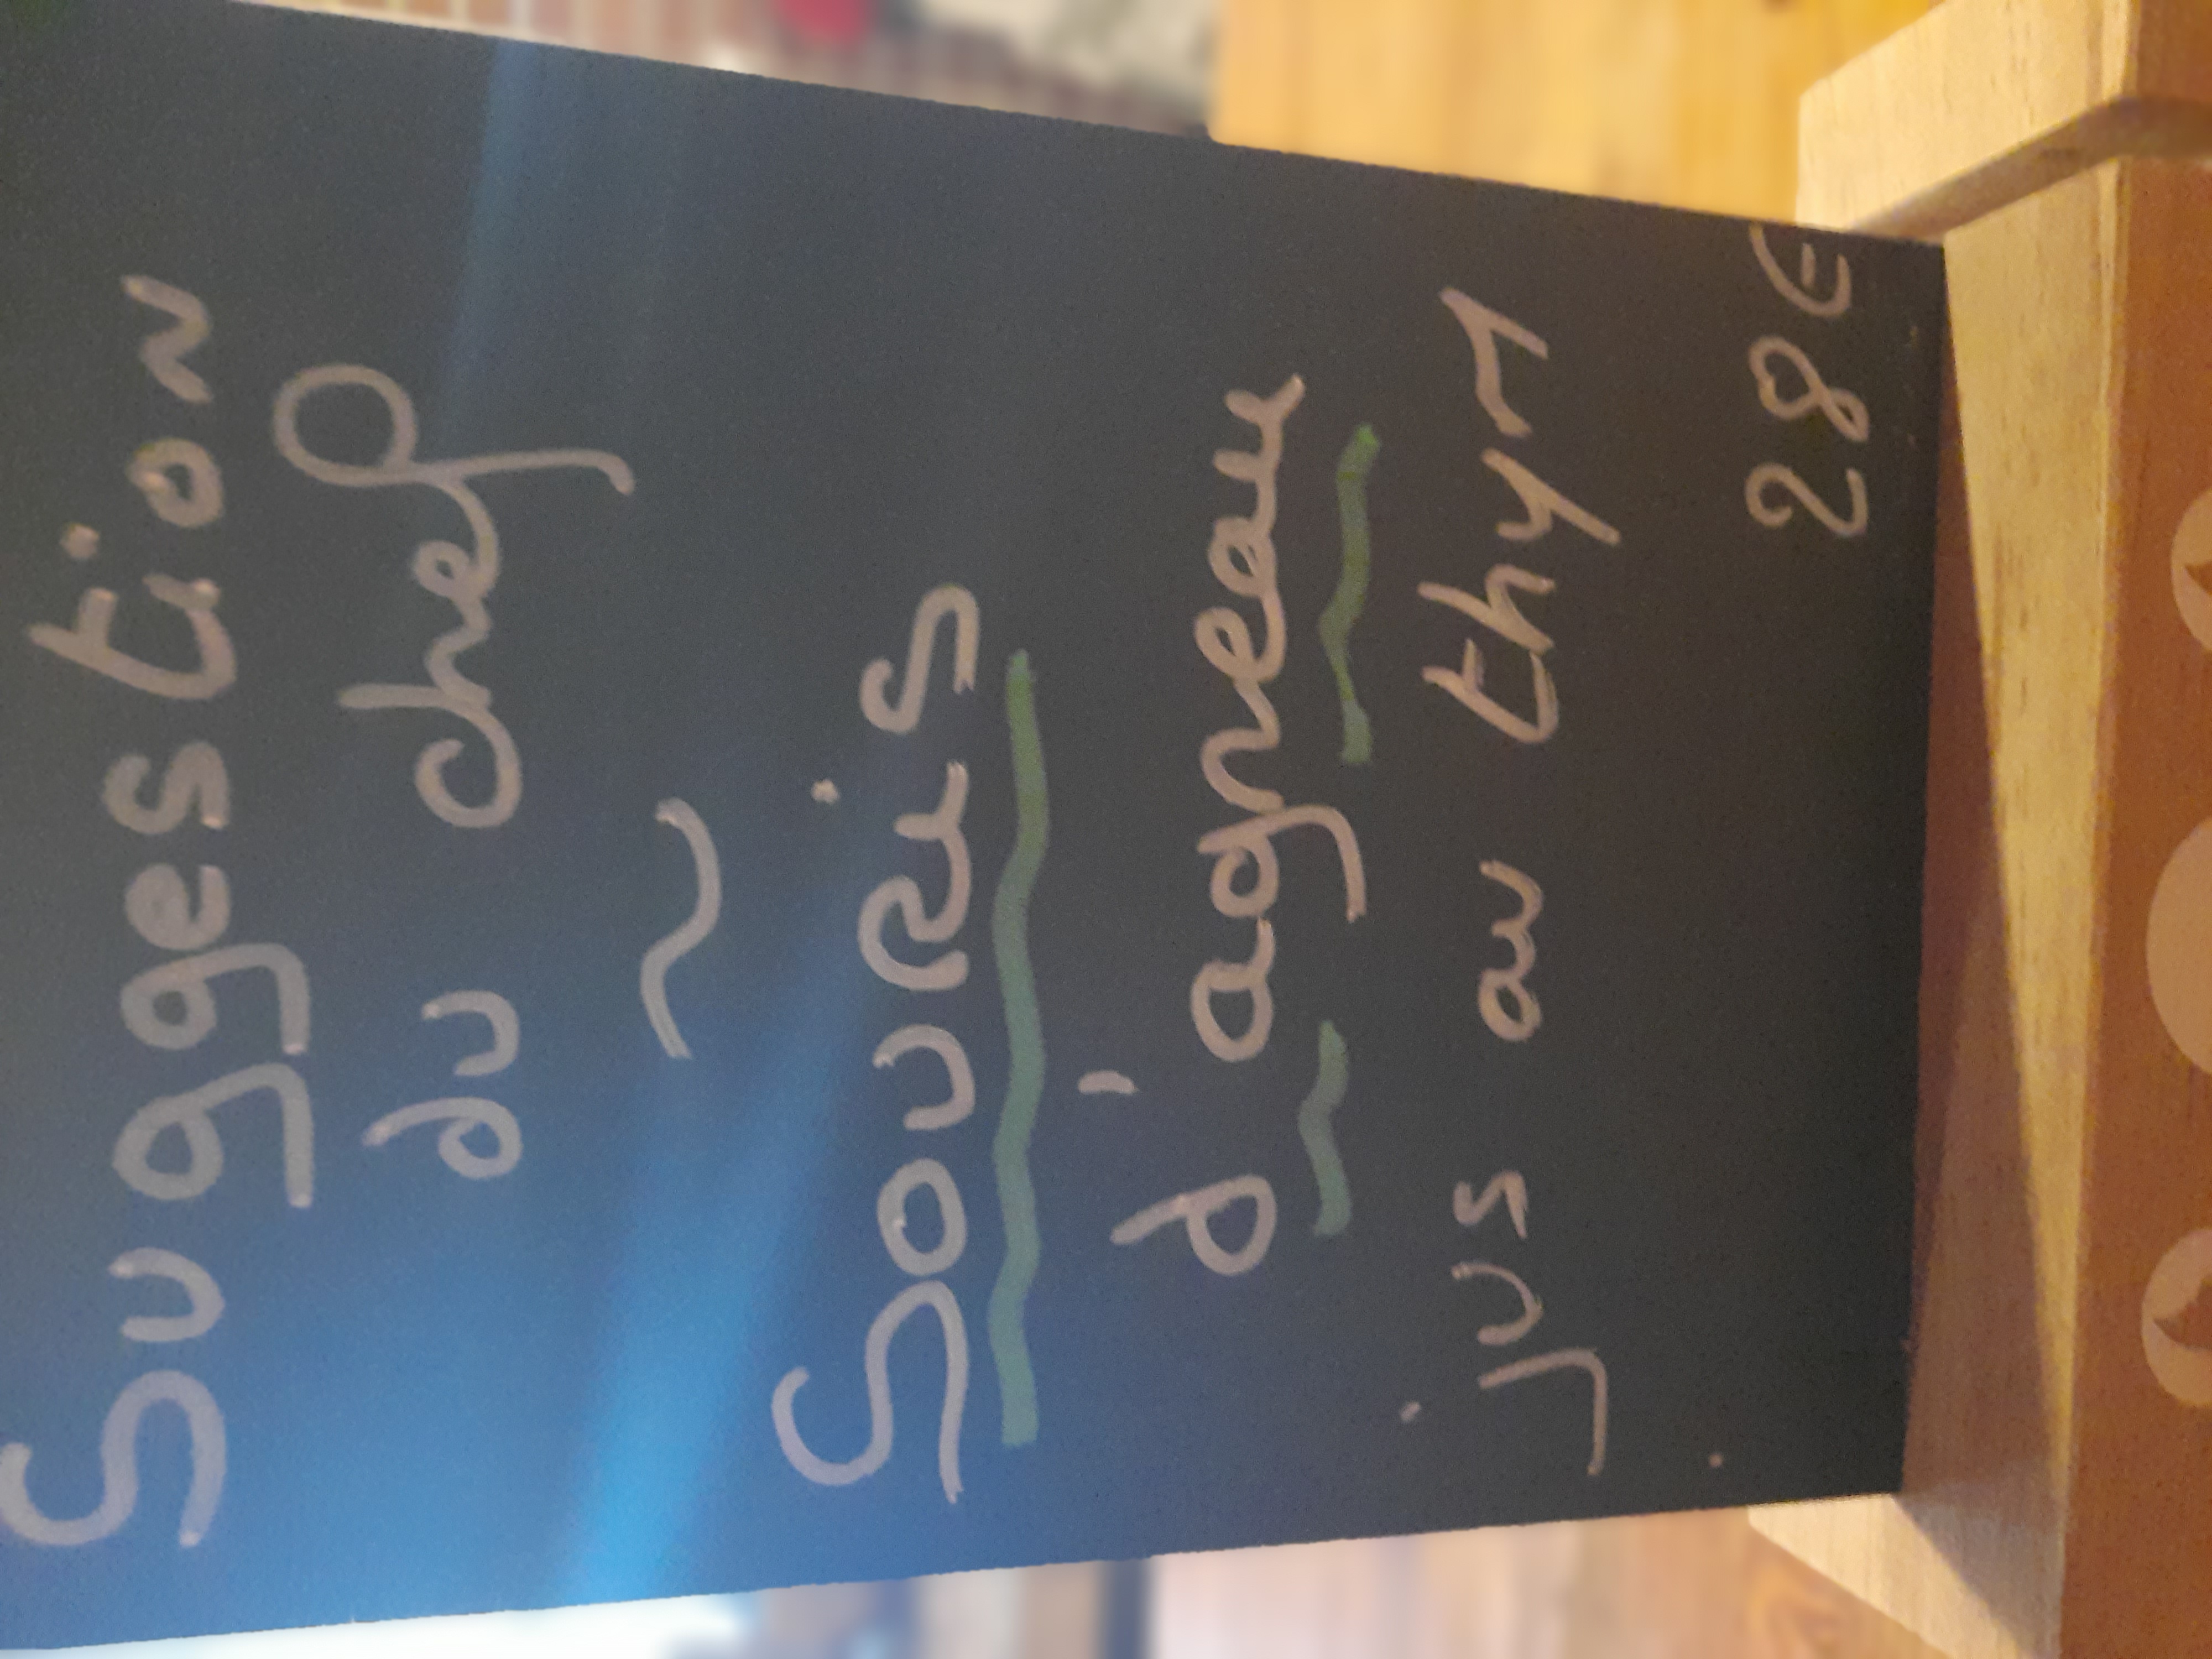 Suggestion
du chef
~
Souris
d'agneau
jus au thym
28€